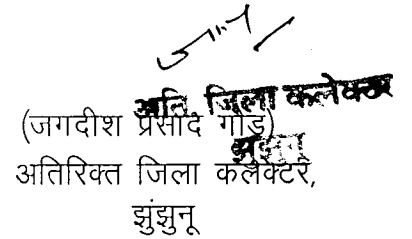 अति. जिला कलेक्टर
(जगदीश प्रसाद गौड़)
झुंझुनू
अतिरिक्त जिला कलेक्टर,
झुंझुनू